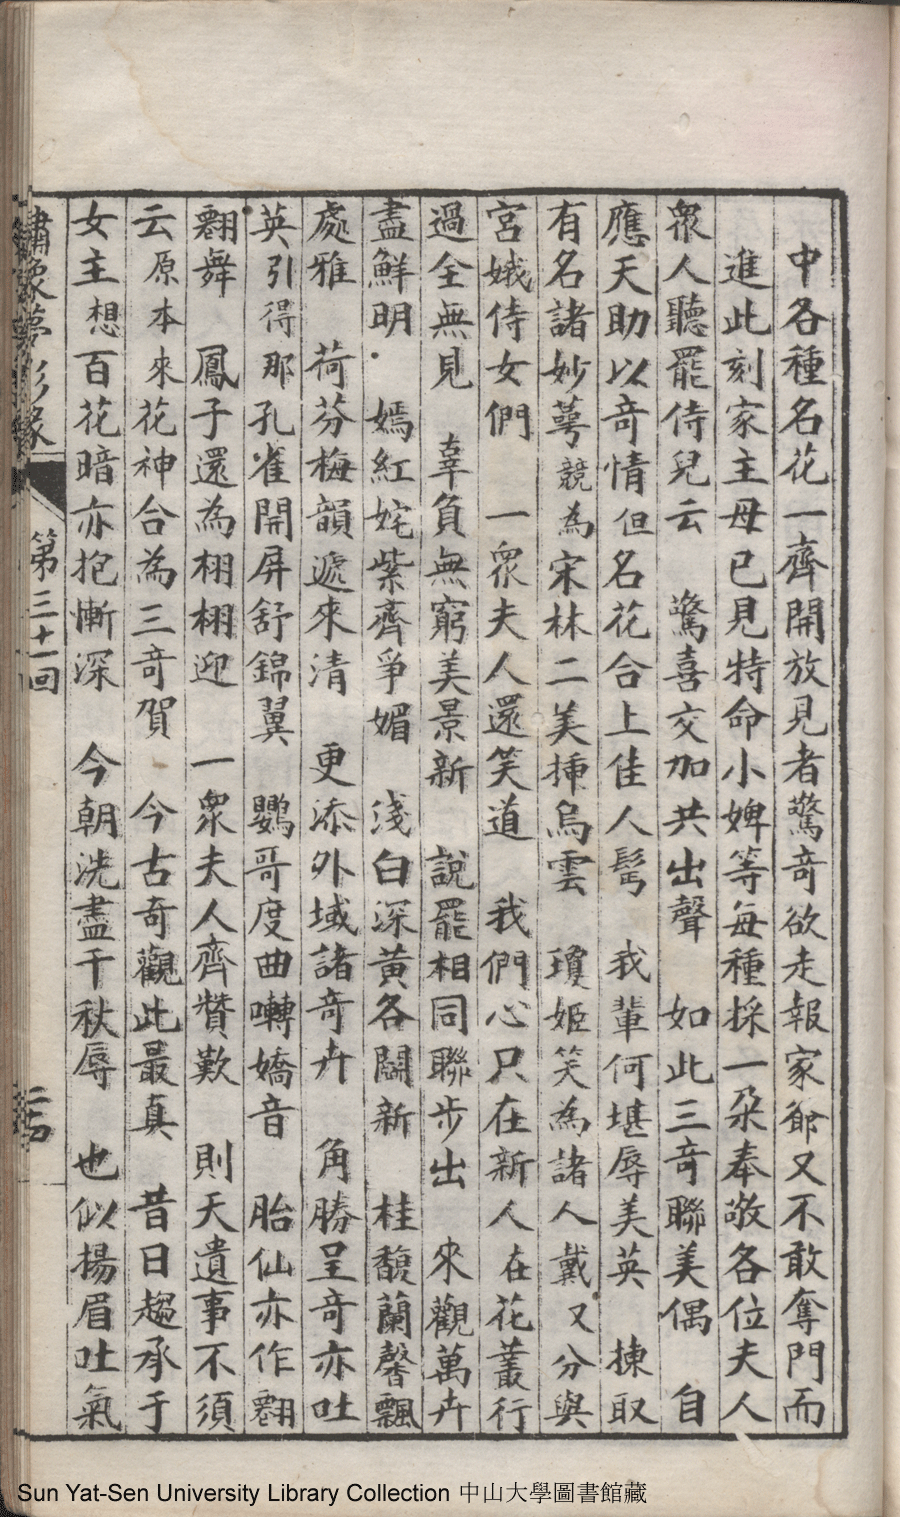 中各種名花一齊開放見者驚奇欲走報家爺又不敢奪門而
進此刻家主母已見特命小婢等每種採一朶奉敬各位夫人
衆人聽罷侍兒云　驚喜交加共出聲　如此三奇聯美偶　自
應天助以奇情但名花合上佳人髩　我輩何堪辱美英　揀取
有名諸妙萼競為宋林二美揷烏雲　瓊姬笑為諸人戴又分與
宮娥侍女們　一衆夫人還笑道　我們心只在新人在花叢行
過全無見　辜負無窮美景新　說罷相同聯步出　來觀萬卉
盡鮮明　嫣紅姹紫齊爭媚　淺白深黃各鬪新　桂馥蘭馨飄
處雅　荷芬梅韻遞來清　更添外域諸奇卉　角勝呈奇亦吐
英引得那孔雀開屏舒錦翼　鸚哥度曲囀嬌音　胎仙亦作翾
翾舞　鳳子還為栩栩迎　一衆夫人齊贊歎　則天遺事不須
云原本來花神合為三奇賀　今古奇觀此最真　昔日趨承于
女主想百花暗亦抱慚深　今朝洗盡千秋辱　也似揚眉吐氣
第三十一回
Sun Yat-Sen University Library Collection 中山大學圖書館藏